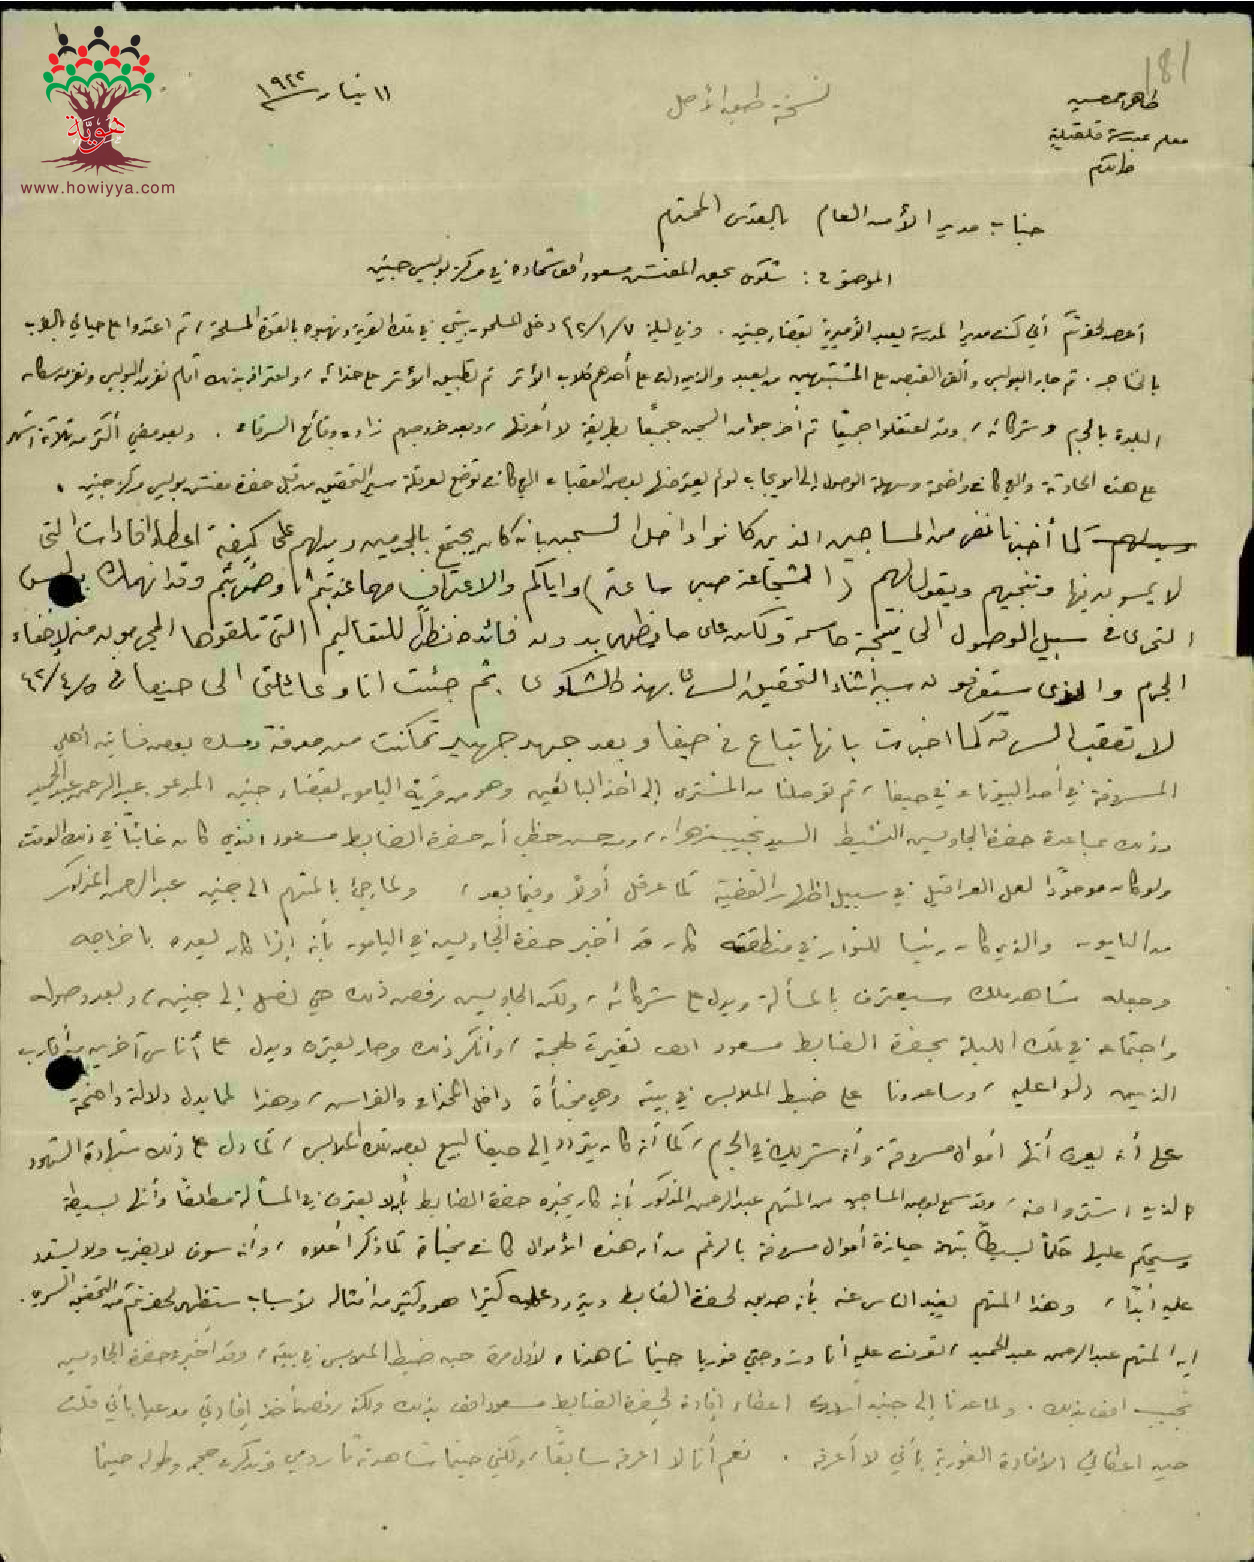 181
طاهر محسن
معلم بمدرسة قلقيلية
طولكرم
نسخة طبق الأصل
١١ نيار ١٩٤٢
هويّة
www.howiyya.com
جناب مدير الأمن العام بالقدس المحترم
الموضوع : شكوى بحق المفتش مسعود افن شحاده في مركز بوليس جنين
أعرض لحضرتكم أني كنت مديرا لمدرسة يعبد الأميرية بقضاء جنين . وفي ليلة ٤٢/١/٧ دخل المسلحون بيتي في تلك القرية ونهبوه بالقوة المسلحة ، ثم اعتدوا على حياتي بالضرب
بالخناجر . ثم جاء البوليس وألقى القبض على المشتبهين من يعبد والذين دلت على أحدهم كلاب الأثر ثم تطبيق الأثر على حذائه ، واعترافه بذلك أمام نفر من البوليس ونفر من سكان
البلدة بالجرم وشركائه ، وقد اعتقلوا جميعا ثم أخرجوا من السجن جميعًا بطريقة لا أعرفها ، وبعد خروجهم زادت وقائع السرقات . وبعد مضي أكثر من ثلاثة أشهر
على هذه الحادثة والتي كانت واضحة وسهلة الوصول إلى الايجاب لو لم يعترضها بعض العقبات التي كانت توضع لعرقلة سير التحقيق من قبل حضرة مفتش بوليس مركز جنين .
كما أخبرنا نفر من المساجين الذين كانوا داخل السجن بانه كان يجتمع بالمجرمين ويدلهم على كيفية اعطاء افادات التي
لا يمسون فيها وتنجيهم ويقول لهم ( الشجاعة صبر ساعة ) واياكم والاعتراف مهما عذبتم وضربتم وقد انهمك بوليس
التحري في سبيل الوصول الى نتيجة حاسمة ولكن على ما يظهر بدون فائدة نظراً للتعاليم التي تلقوها المجرمون منه لاخفاء
الجرم والذي ستعرفونه سببه اثناء التحقيق السري بهذه الشكوى . ثم جئت انا وعائلتي الى حيفا في ٤٢/٤/٥
لا تعقب السرقة كما اخبرت بانها تباع في حيفا وبعد جهد جهيد تمكنت من معرفة ومسك بعض فساتين أهلي
المسروقة في أحد البيوت في حيفا ، ثم توصلنا من المشتري إلى أخذ البائعين وهو من قرية اليامون بقضاء جنين المدعو عبد الرحمن عبد الحميد
وذلك بمساعدة حضرة الجاويش النشيط السيد نجيب ، ومن حسن حظي أن حضرة الضابط مسعود افندي كان غائبًا في ذلك الوقت
ولو كان موجودًا لعمل العراقيل في سبيل اظهار القضية كما عرقل أولاً وفيما بعد ، ولما جيء بالمتهم الى جنين عبد الرحمن المذكور
من اليامون والذي كان رئيسا للثوار في منطقته كان قد أخبر حضرة الجاويش في اليامون بأنه إذا كان يعده باخراجه
وجعله شاهد ملك سيعترف بالمسألة ويدل على شركائه ، ولكن الجاويش رفض ذلك حتى نصل إلى جنين ، وبعد وصوله
واجتماعه في تلك الليلة بحضرة الضابط مسعود افن تغيرت لهجته ، وأنكر ذلك وصار يعترف ويدل على أناس آخرين من أقارب
الذين دلوا عليه ، وساعدونا على ضبط الملابس في بيته وهي مخبأة داخل المخدات والفراش ، وهذا مما يدل دلالة واضحة
على أنه يعرف أنها أموال مسروقة وأنه شريك في الجرم ، كما أنه كان يتردد إلى حيفا لبيع بعض تلك الملابس ، كما دل على ذلك شهادة الشهود
الذين اشتروا منه ، وقد سمع بعض المساجين من المتهم عبد الرحمن المذكور بأنه كان يخبره حضرة الضابط بأن لا يعترف في المسألة مطلقًا وأنها بسيطة
وسيحكم عليها حكماً بسيطاً بتهمة حيازة أموال مسروقة بالرغم من أن هذه الأموال كانت مخبأة كما ذكر أعلاه ، وأنه سوف لا يضرب ولا يشدد
عليه أبدًا ، وهذا المتهم يفيد الناس عنه بأنه صديق لحضرة الضابط ويتردد عليه كثيرًا هو وكثير من أمثاله لأسباب ستظهر لحضرتكم من التحقيق السري .
إن المتهم عبد الرحمن عبد الحميد تعرفت عليه أنا وزوجتي فوريا حينما شاهدناه لأول مرة حين ضبط الملابس في بيته ، وقد أخبرت حضرة الجاويش
نجيب افن بذلك . ولما عدنا إلى جنين أردت اعطاء إفادة لحضرة الضابط مسعود افن بذلك ولكنه رفض أخذ إفادتي مدعيا بأني قلت
حين اعطائي الافادة الفورية بأني لا أعرفه . نعم أنا لا أعرفه سابقًا ، ولكني حينما شاهدته تذكرت حجمه وطوله حينما